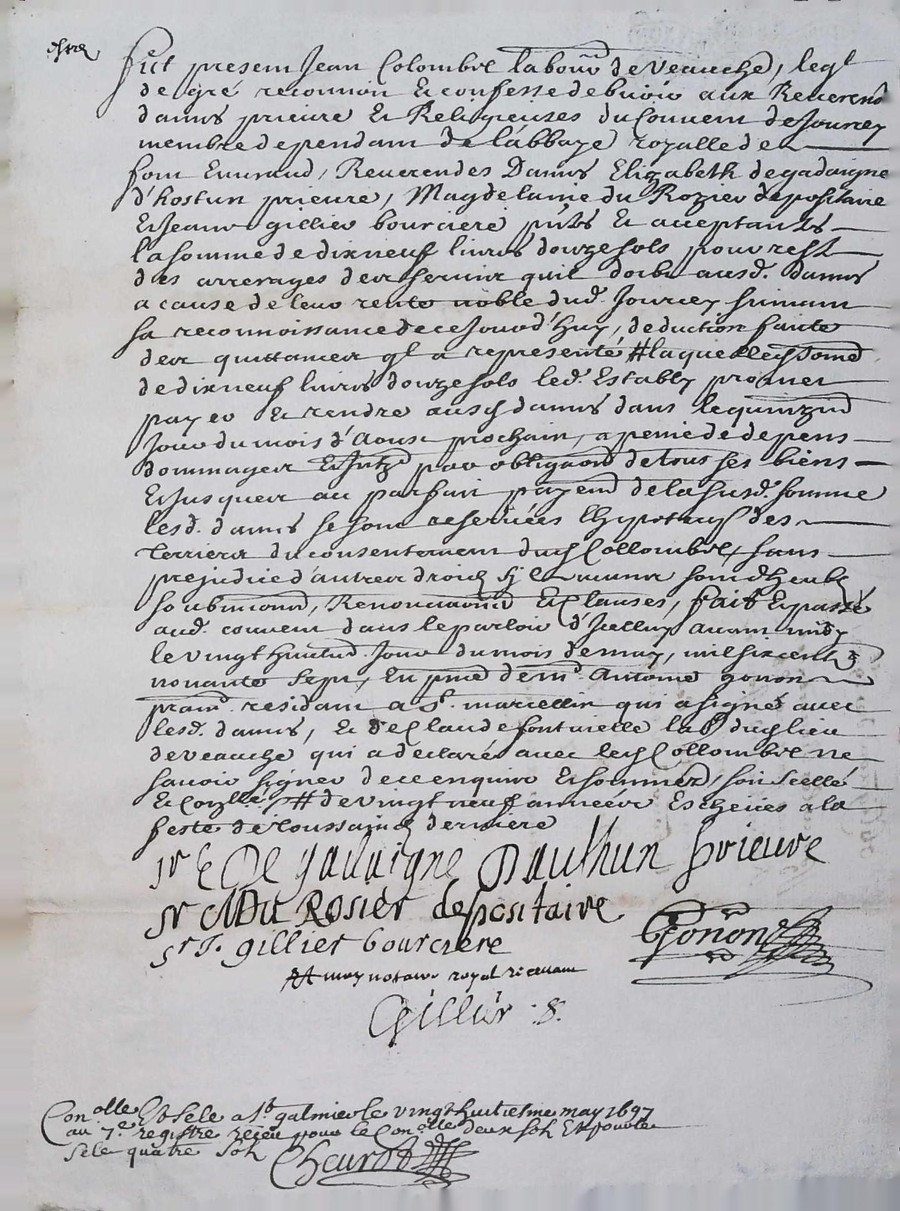 fut present Jean Colombet labour de veauche, leql
de gré reconnoit et confesse debvoir aux Reverend
dames prieure et Religieuses du Couvent de Jourcey
membre dependant de l'abbaye royalle de
font Evuraud, Reverendes Dames Elizabeth de gadaigne
d'hostun prieure, Magdelaine du Rozier depositaire
Et Jeanne gillier boursiere pntes et acceptantes
la somme de dixneuf livres douze sols pour reste
des arrerages des servis quil doibt ausd. dames
a cause de leur rente noble dud. Jourcey suivant
sa reconnoissance de ce jourd'huy, deduction faite
des quittances ql a representé # laquelle somme
de dixneuf livres douze sols led. Estably promet
payer et rendre ausd dames dans le quinziem
jour du mois d'Aoust prochain, a peine de depens
dommages Et Intz par obligaon de tous ses biens
Et jusques au parfait payemt de la susd. somme
lesd. dames se sont reservées lhypoteq des
terriers du consentement dud Collombet, sans
prejudice d'autres droicts
soubmions, Renonciaons Et Clauses, fait Et passé
aud. couvent dans le parloir d'Icelluy avant midy
le vingt huitie jour du mois de may, mil six cents
nonante sept, En pnce de mr Antoine gonon
pratn. residant a St. marcellin qui a signé avec
lesd. dames, et de Claude fontvielle lab dud lieu
de veauche qui a declaré avec led Collombet ne
savoir signer de ce enquis Et sommez, soit scellé
et Conllé, # de vingt neuf années Escheües a la
feste de toussaincts derniere
Sr E De gadaigne Dauthun prieure
Sr M Du Rosier depositaire
Sr J. gillier bourciere
Gonon
# moy notaire royal recevant
Gillier
Conolle Et Sele a St galmier le vingt huitiesme may 1697
au 7.e registre receu pour le Conolle deux sols Et pour le
sele quatre sols